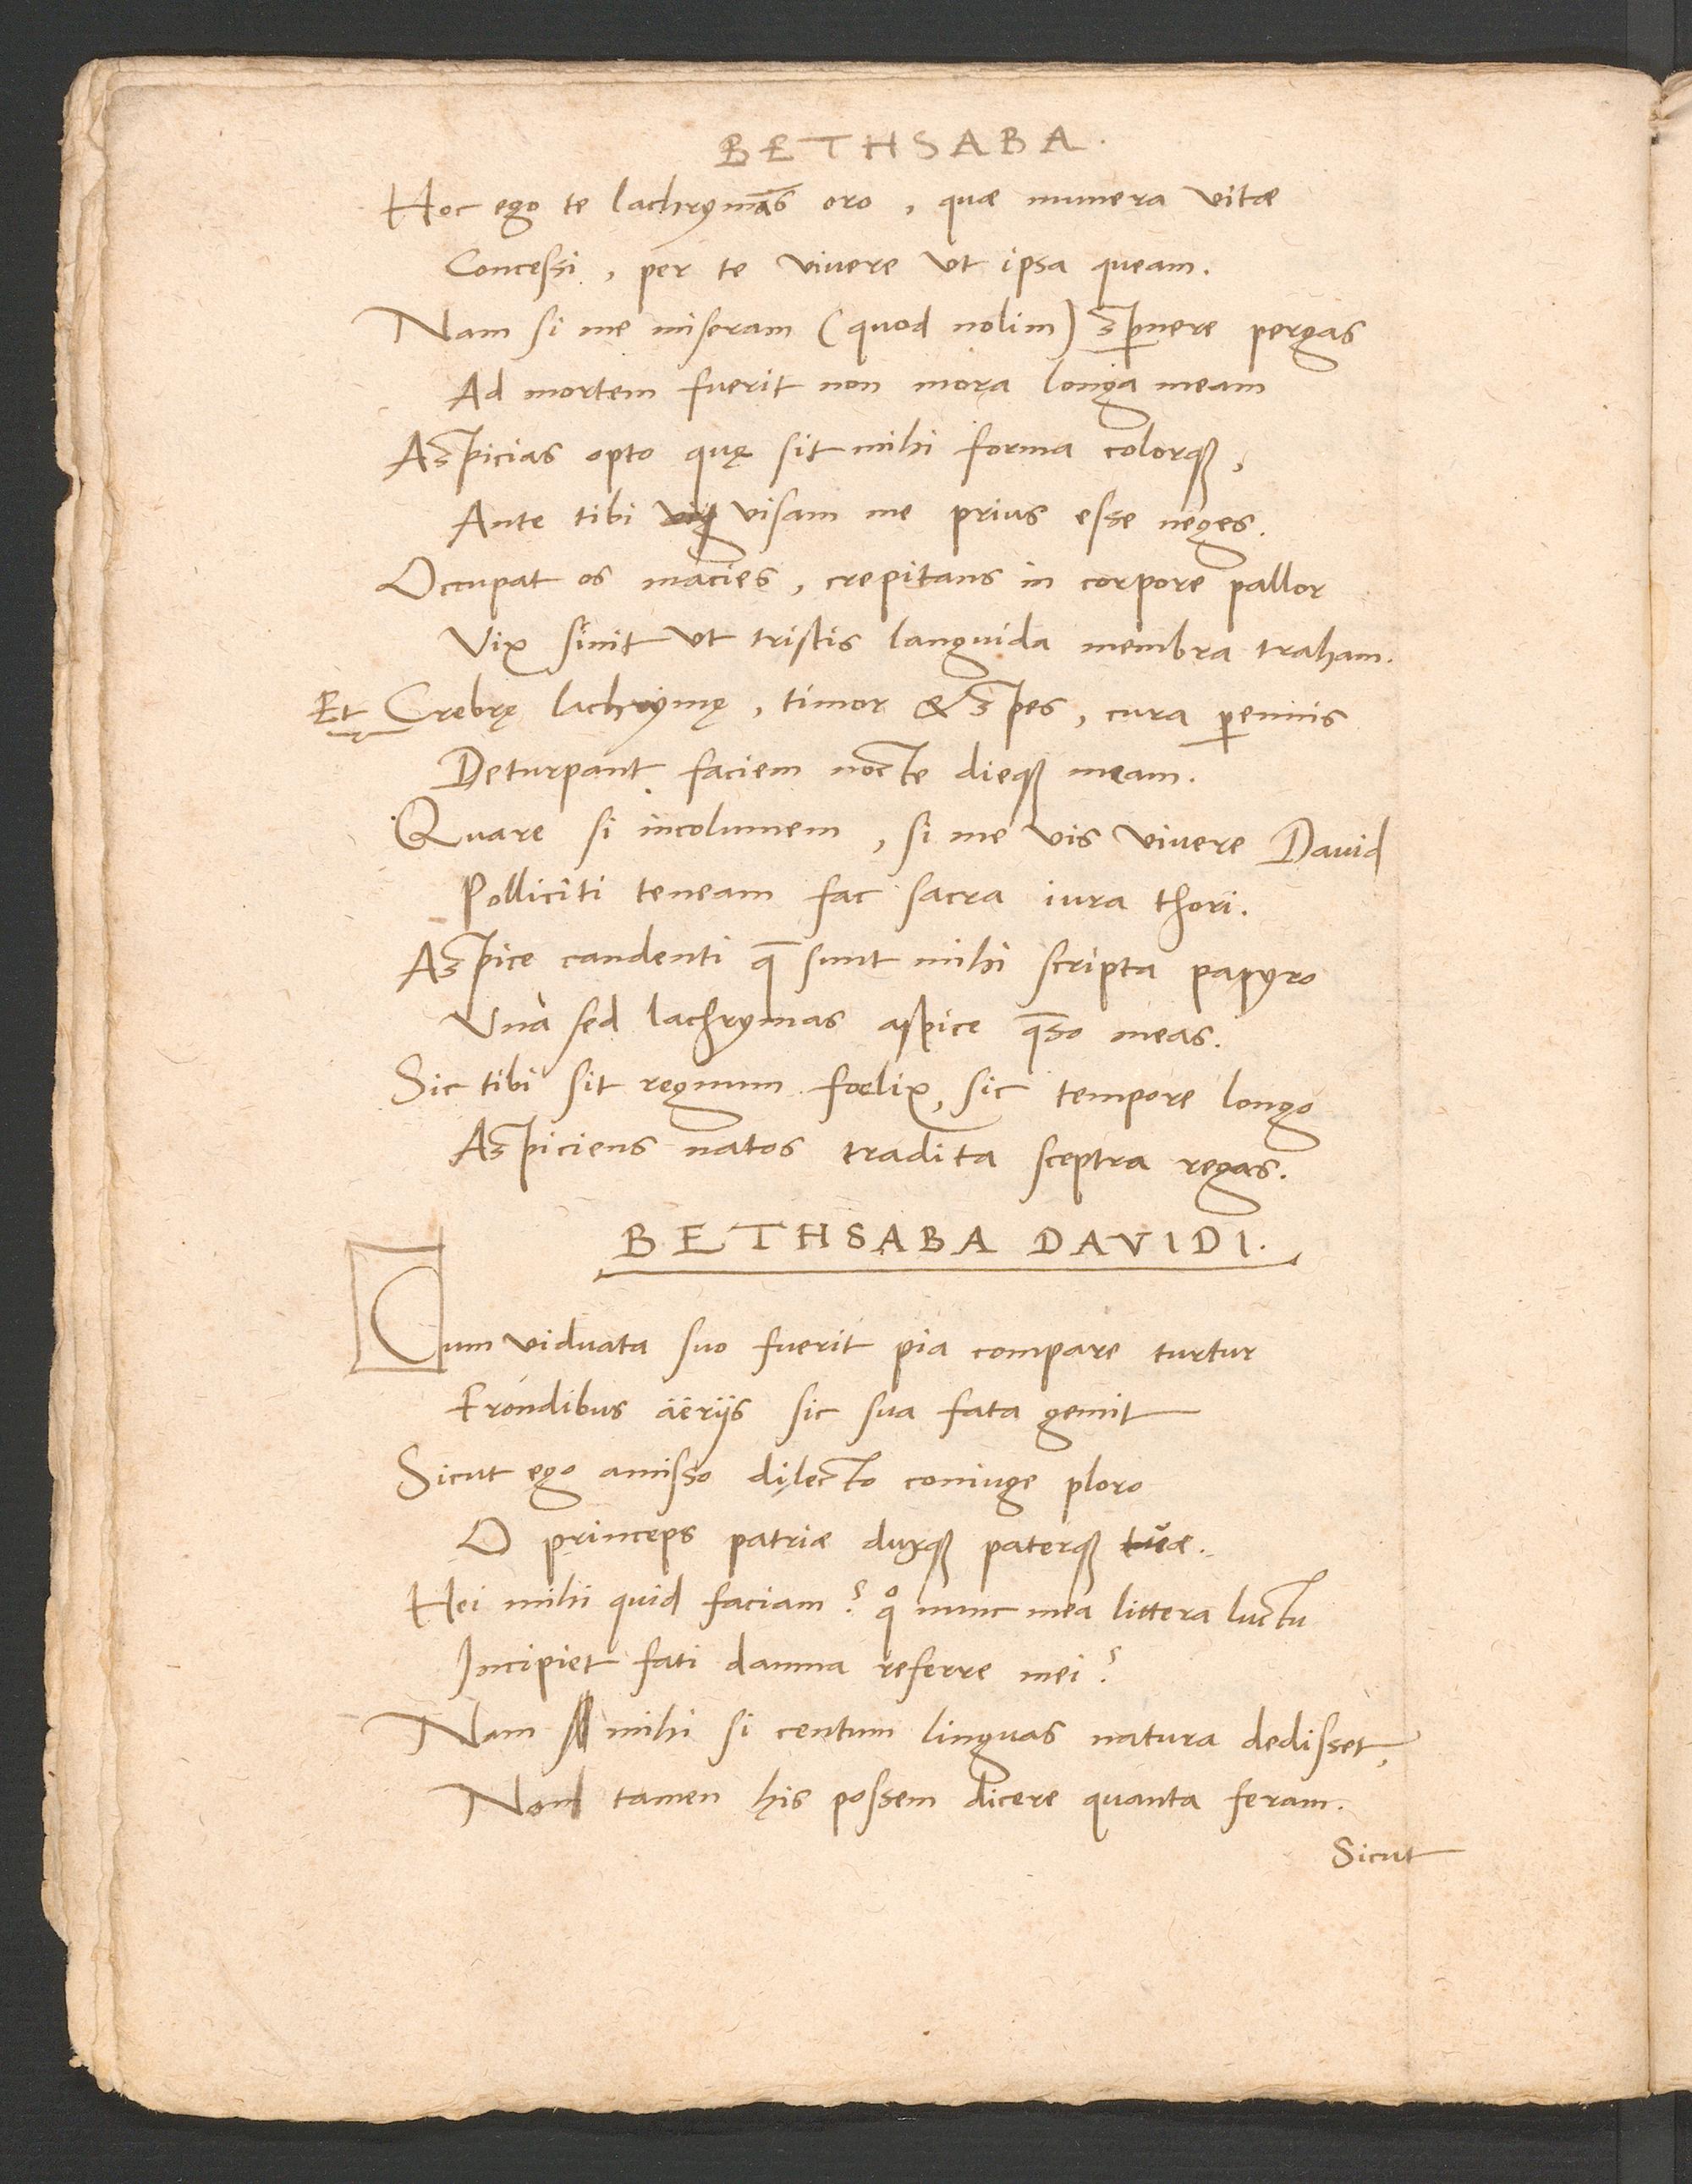 BETHSABA.
Hoc ego te lachrymās oro, quæ munera vitæ
Concessi, per te vivere vt ipsa queam.
Nam si me miseram (quod nolim) spnere pergas
Ad mortem fuerit non mora longa meam
Aspicias opto quę sit mihi forma colorq;,
Ante tibi visam me prius esse neges.
Occupat os macies, crepitans in corpore pallor
Vix sinit vt tristis languida membra traham.
Et Crebrę lachrymę, timor & spes, cura p̱ennis
Deturpant faciem nocte dieq; meam.
Quare si incolumem, si me vis vivere David
Polliciti teneam fac sacra iura thori.
Aspice candenti q̄ sunt mihi scripta papyro
Vnà sed lachrymas aspice q̄so meas.
Sic tibi sit regnum foelix, sic tempore longo
Aspiciens natos tradita sceptra regas.
BETHSABA DAVIDI.
Cum viduata suo fuerit pia compare turtur
Frondibus aëriis sic sua fata gemit
Sicut ego amisso dilecto coniuge ploro
O princeps patriæ duxq; paterq; tuæ.
Hei mihi quid faciam? qͦ nunc mea littera luctu
Incipiet fati damna referre mei?
Nam mihi si centum linguas natura dedisset,
Non tamen his possem dicere quanta feram.
Sicut